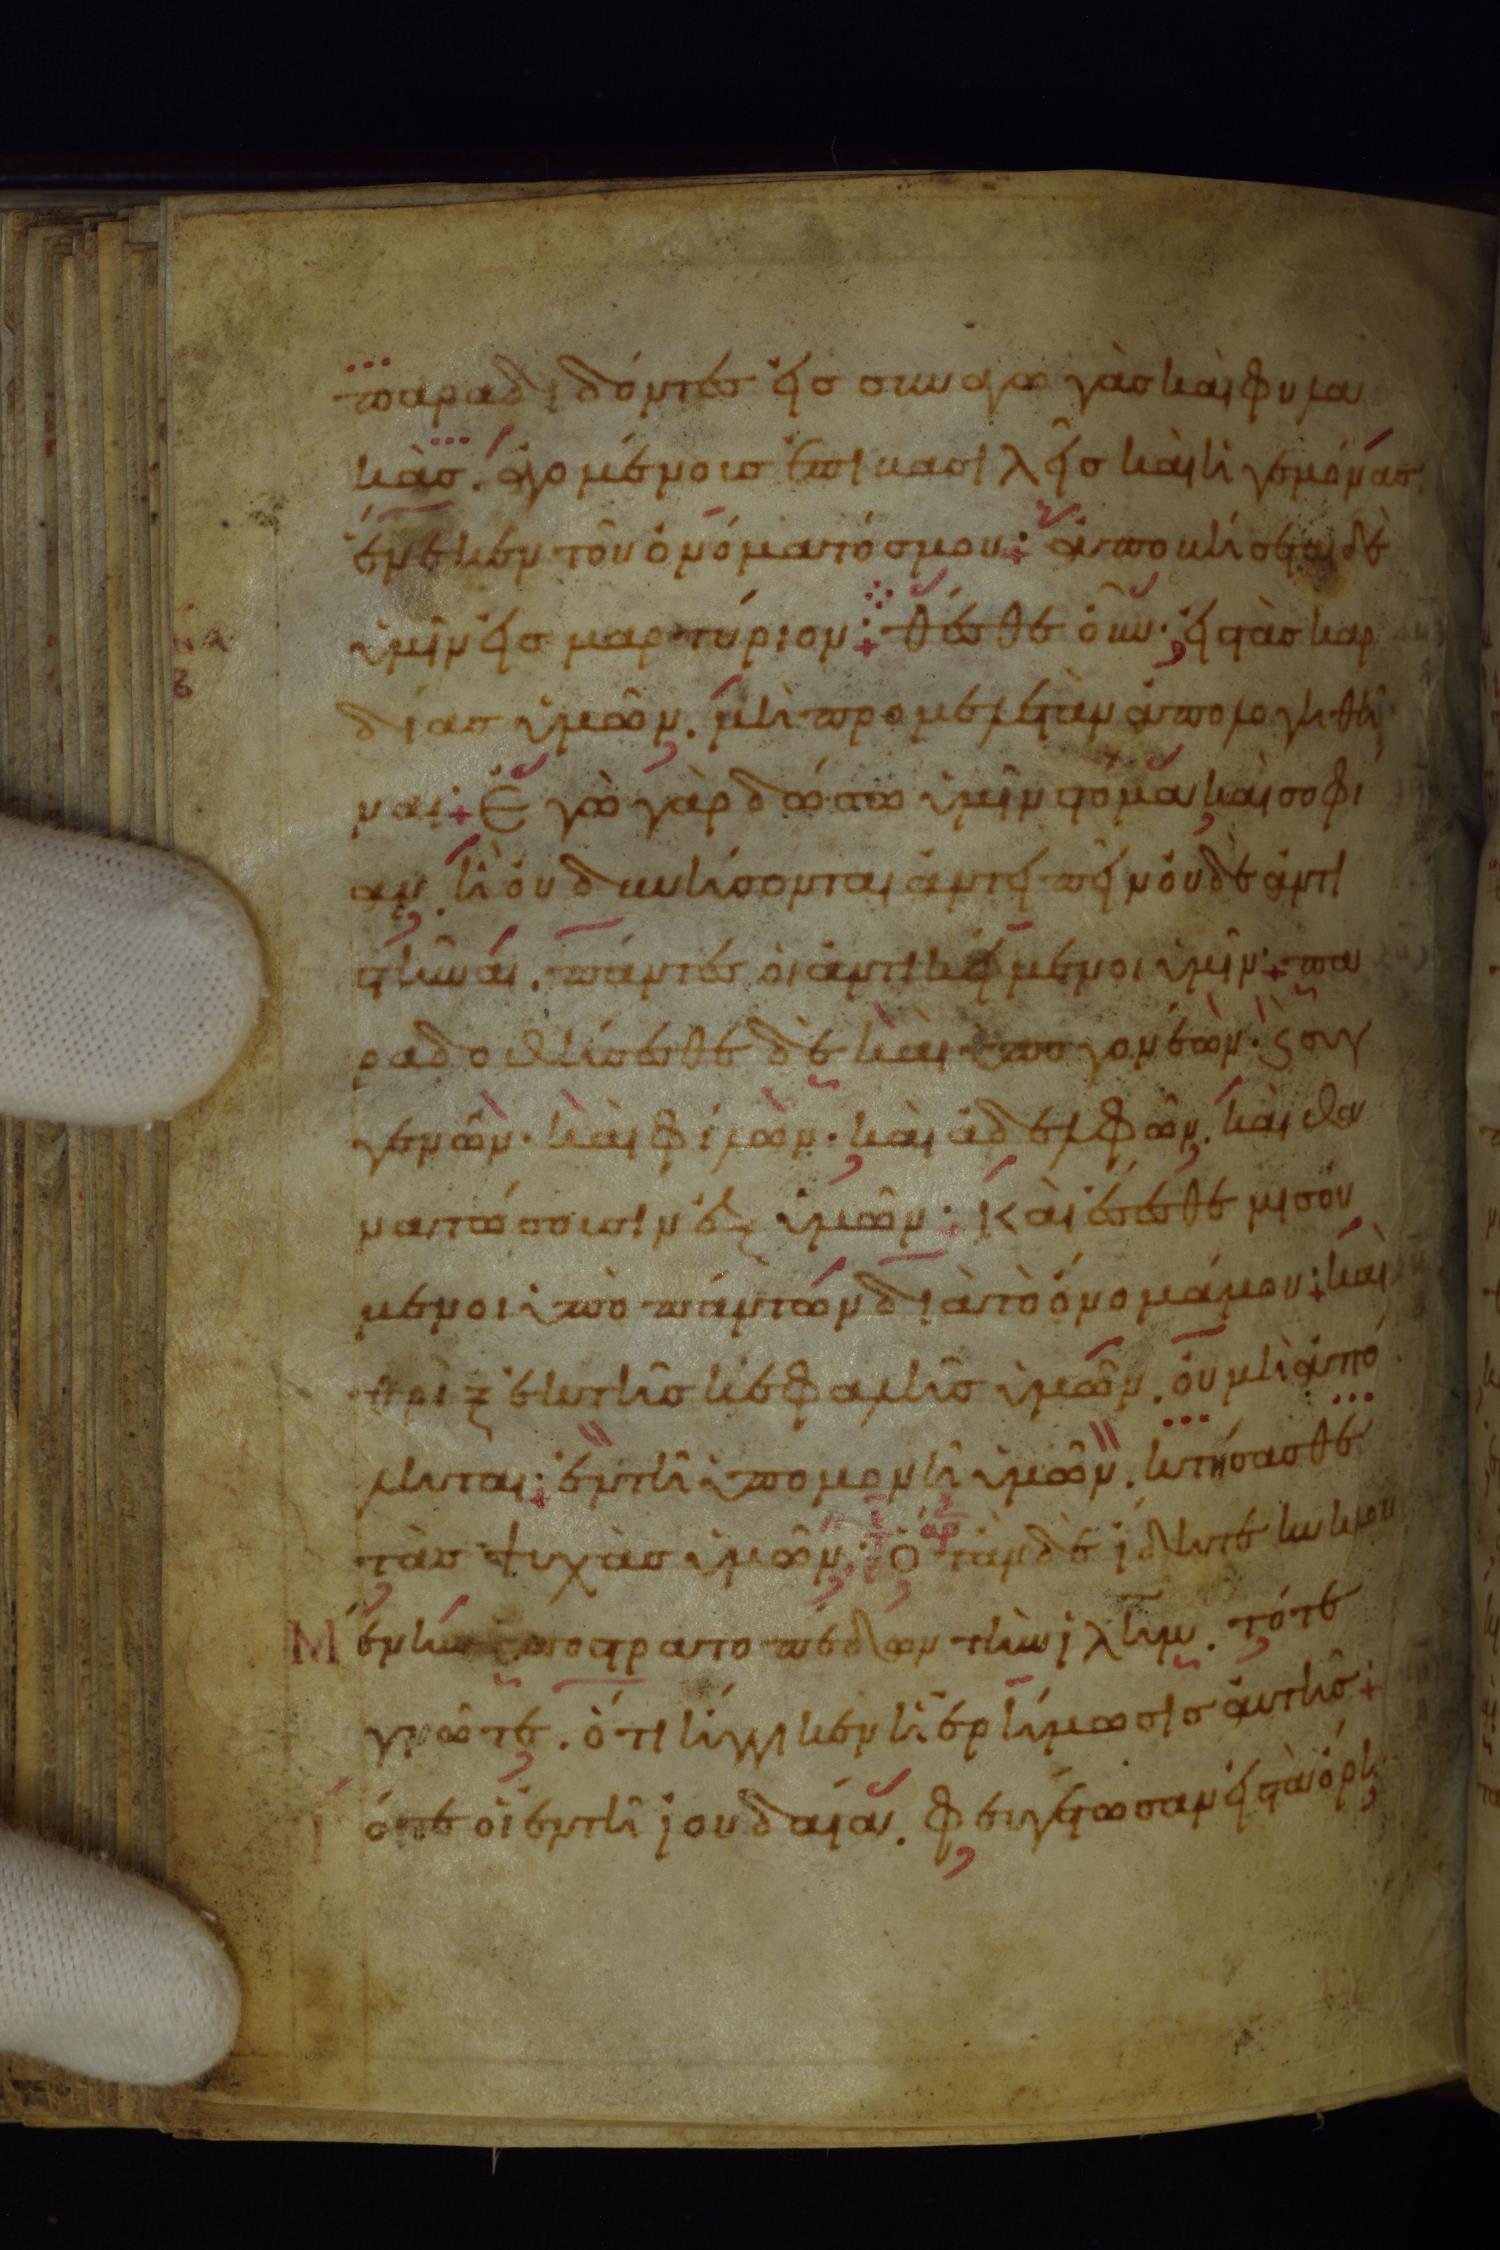 παραδιδόντες εἰς συναγωγὰς καὶ φυλα
κὰς. ἀγομένοις ἐπι βασιλεῖς καὶ ἡγεμόνας.
ἕνεκεν τοῦ ὀνόματός μου· ἀποβήσεται δὲ
ὑμῖν εἰς μαρτύριον· θέσθε οὖν· εἰς τὰς καρ
δίας ὑμῶν. μὴ προμελετὰν ἀπολογηθῆ
ναι· Ἐγὼ γὰρ δώσω ὑμῖν στόμα καὶ σοφί
αν. ἧ οὐ δυνήσονται ἀντειπεῖν οὐδὲ ἀντι
στῆναι. πάντες οἱ ἀντικείμενοι ὑμῖν· πα
ραδοθήσεσθε δὲ καὶ ὑπο γονέων· ϗ συγ
γενῶν· καὶ φίλων· καὶ ἀδελφῶν. καὶ θα
νατώσουσιν ἐξ ὑμῶν· Καὶ ἔσεσθε μισού
μενοι ὑπὸ πάντων διὰ τὸ ὄνομά μου· καὶ
θρὶξ ἐκ τῆς κεφαλῆς ὑμῶν. οὐ μὴ ἀπό
ληται· ἐν τῆ ὑπομονῆ ὑμῶν. κτήσασθε
τὰς ψυχὰς ὑμῶν· Ὅταν δὲ ἴδητε κυκλου
Μένην ὑπο στρατοπέδων τὴν ἰλῆμ. τότε
γνῶτε. ὅτι ἤγγικεν ἡ ἐρήμωσις αὐτῆς
Τότε οἱ ἐν τῆ ἰουδαία. φευγέτωσαν εἰς τὰ ὄρη